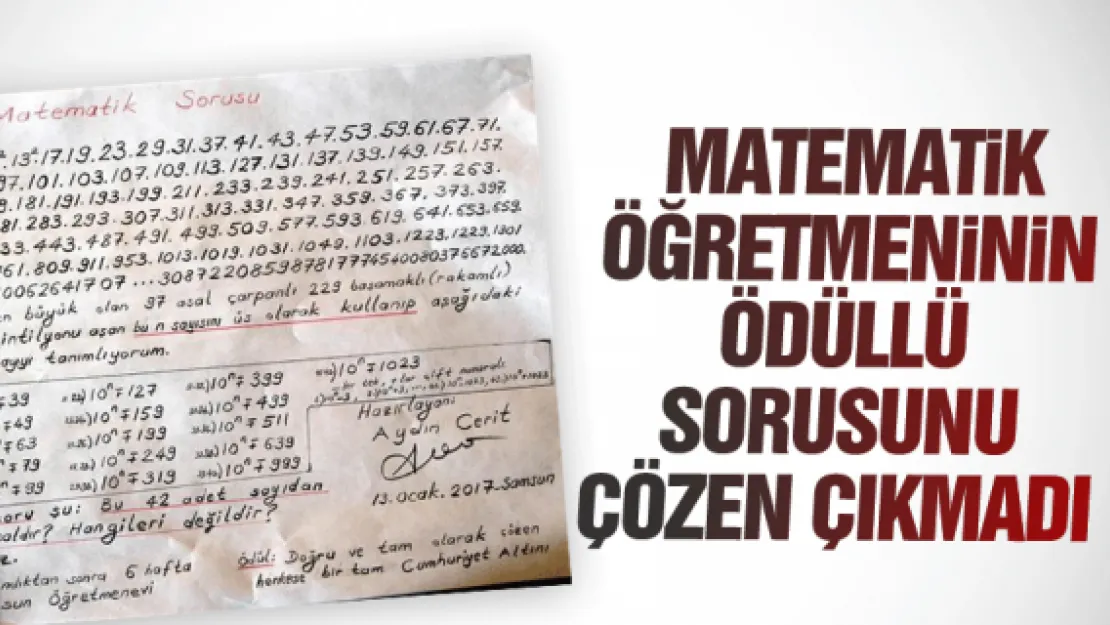 Matematik Sorusu
13².17.19.23.29.31.37.41.43.47.53.59.61.67.71.
97.101.103.107.109.113.127.131.137.139.149.151.157.
181.191.193.199.211.233.239.241.251.257.263.
281.283.293.307.311.313.331.347.359.367.373.397.
433.443.487.491.499.509.577.593.619.641.653.659.
761.809.911.953.1013.1019.1031.1049.1103.1223.1229.1301
10062641707...30872208598781777454008037667​2000.
büyük olan 97 asal çarpanlı 229 basamaklı (rakamlı)
aşan bu n sayısını üs olarak kullanıp aşağıdaki
tanımlıyorum.
∓39 10ⁿ∓127 10ⁿ∓399 10ⁿ∓1023
∓49 10ⁿ∓159 10ⁿ∓499
∓63 10ⁿ∓199 10ⁿ∓511
∓79 10ⁿ∓249 10ⁿ∓639
∓99 10ⁿ∓319 10ⁿ∓999
Hazırlayan:
Aydın Cerit
13.Ocak.2017-Samsun
Soru şu: Bu 42 adet sayıdan
Hangileri değildir?
sonra 6 hafta
Öğretmenevi
Ödül: Doğru ve tam olarak çözen
herkese bir tam Cumhuriyet Altını
MATEMATİK
ÖĞRETMENİNİN
ÖDÜLLÜ
SORUSUNU
ÇÖZEN ÇIKMADI